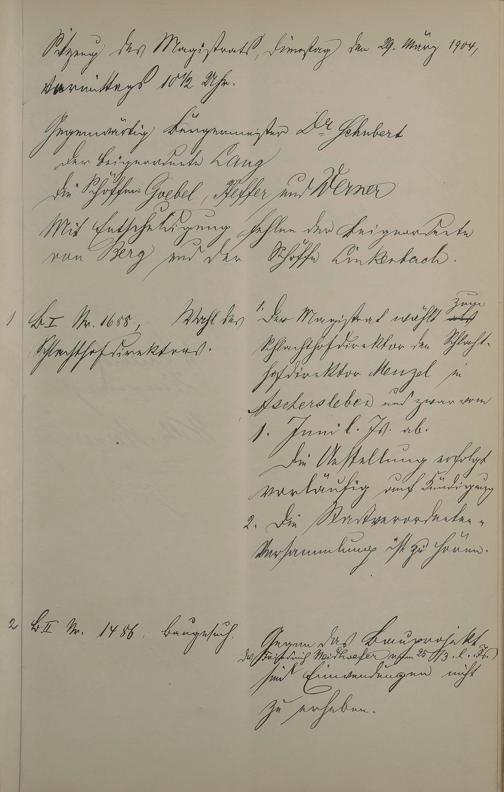 Sitzung des Magistrats, Dienstag den 29. März 1904,
Vormittags 10½ Uhr.
Gegenwärtig Bürgermeister Dr Schubert
der Beigeordnete Lang
die Schöffen Goebel, Pfeffer und Werner
Mit Entschuldigung fehlen der Beigeordnete
von Berg und der Schöffe Linkenbach.
1 B I Nr. 1608, Wahl des
Schlachthofdirektors.
1. Der Magistrat wählt zum
Schlachthofdirektor den Schlacht-
hofdirektor Menzel in
Aschersleben und zwar vom
1. Juni l. Js. ab.
Die Anstellung erfolgt
vorläufig auf Kündigung
2. Die Stadtverordneten-
Versammlung ist zu hören.
2 B II Nr. 1486. Baugesuch.
Gegen das Bauprojekt
des Friedrich vom 25/3. l. Js.
sind Einwendungen nicht
zu erheben.